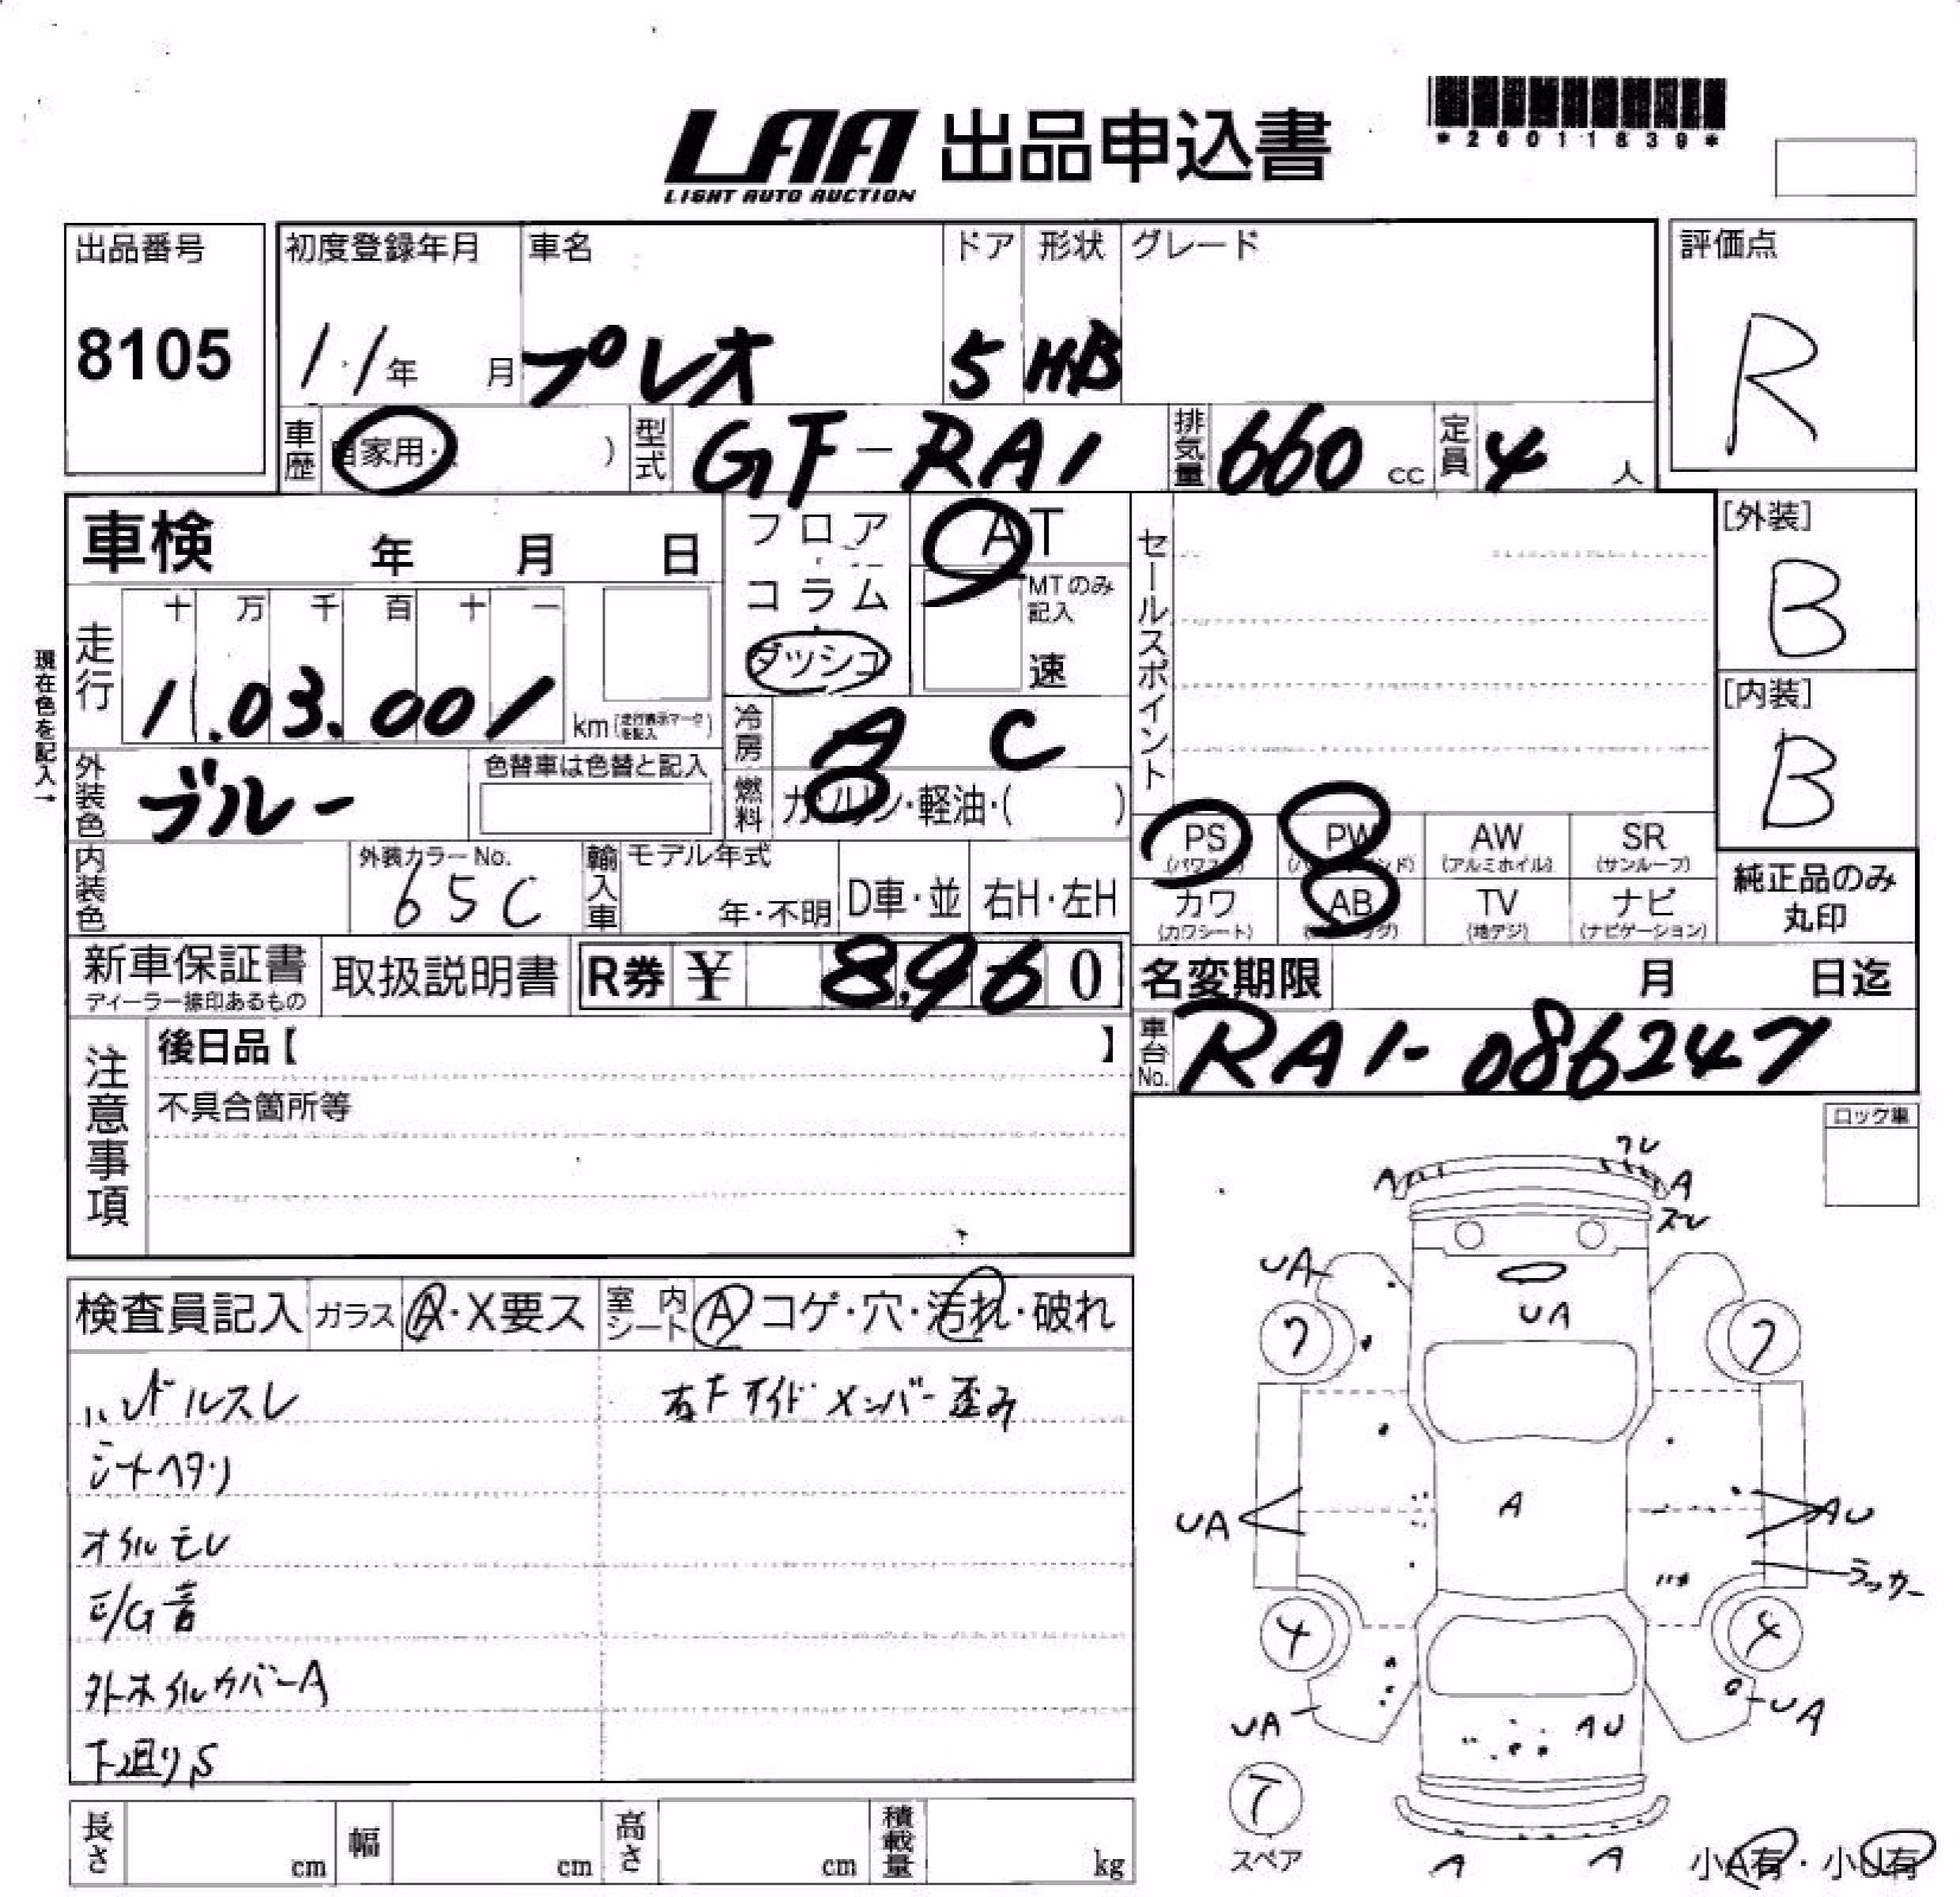 LAA 出品申込書
LIGHT AUTO AUCTION
*26011839*
出品番号 初度登録年月 車名 ドア 形状 グレード 評価点
8105 11年 月 プレオ 5 HB R
車歴 自家用・ ) 型式 GF-RA1 排気量 660 cc 定員 4 人
車検 年 月 日
フロア AT
コラム MTのみ記入
ダッシュ 速
セールスポイント
[外装]
B
[内装]
B
現在色を記入→
走行 十 万 千 百 十 一
1.03.001 km(走行表示マークを記入)
冷房 A C
外装色 ブルー 色替車は色替と記入
燃料 ガソリン・軽油・( )
PS PW AW SR
(パワステ) (パワーウインド) (アルミホイル) (サンルーフ)
内装色 外装カラーNo. 65C 輸入車 モデル年式 年・不明 D車・並 右H・左H
カワ AB TV ナビ
(カワシート) (エアーバッグ) (地デジ) (ナビゲーション)
純正品のみ
丸印
新車保証書 取扱説明書 R券 ¥ 8,960
ディーラー捺印あるもの
名変期限 月 日迄
注意事項
後日品【 】
車台No. RA1-086247
不具合箇所等
ロック車
検査員記入 ガラス A・X要ス 室内シート A コゲ・穴・汚れ・破れ
ハンドルスレ 右Fサイドメンバー歪み
シートヘタリ
オイルモレ
E/G音
外ホイルカバーA
下廻りS
ワレ
A A
スレ
UA
UA
7 7
A
UA AU
ラッカー
4 4
UA AU UA
7
スペア
A A
小A有・小U有
長さ cm 幅 cm 高さ cm 積載量 kg